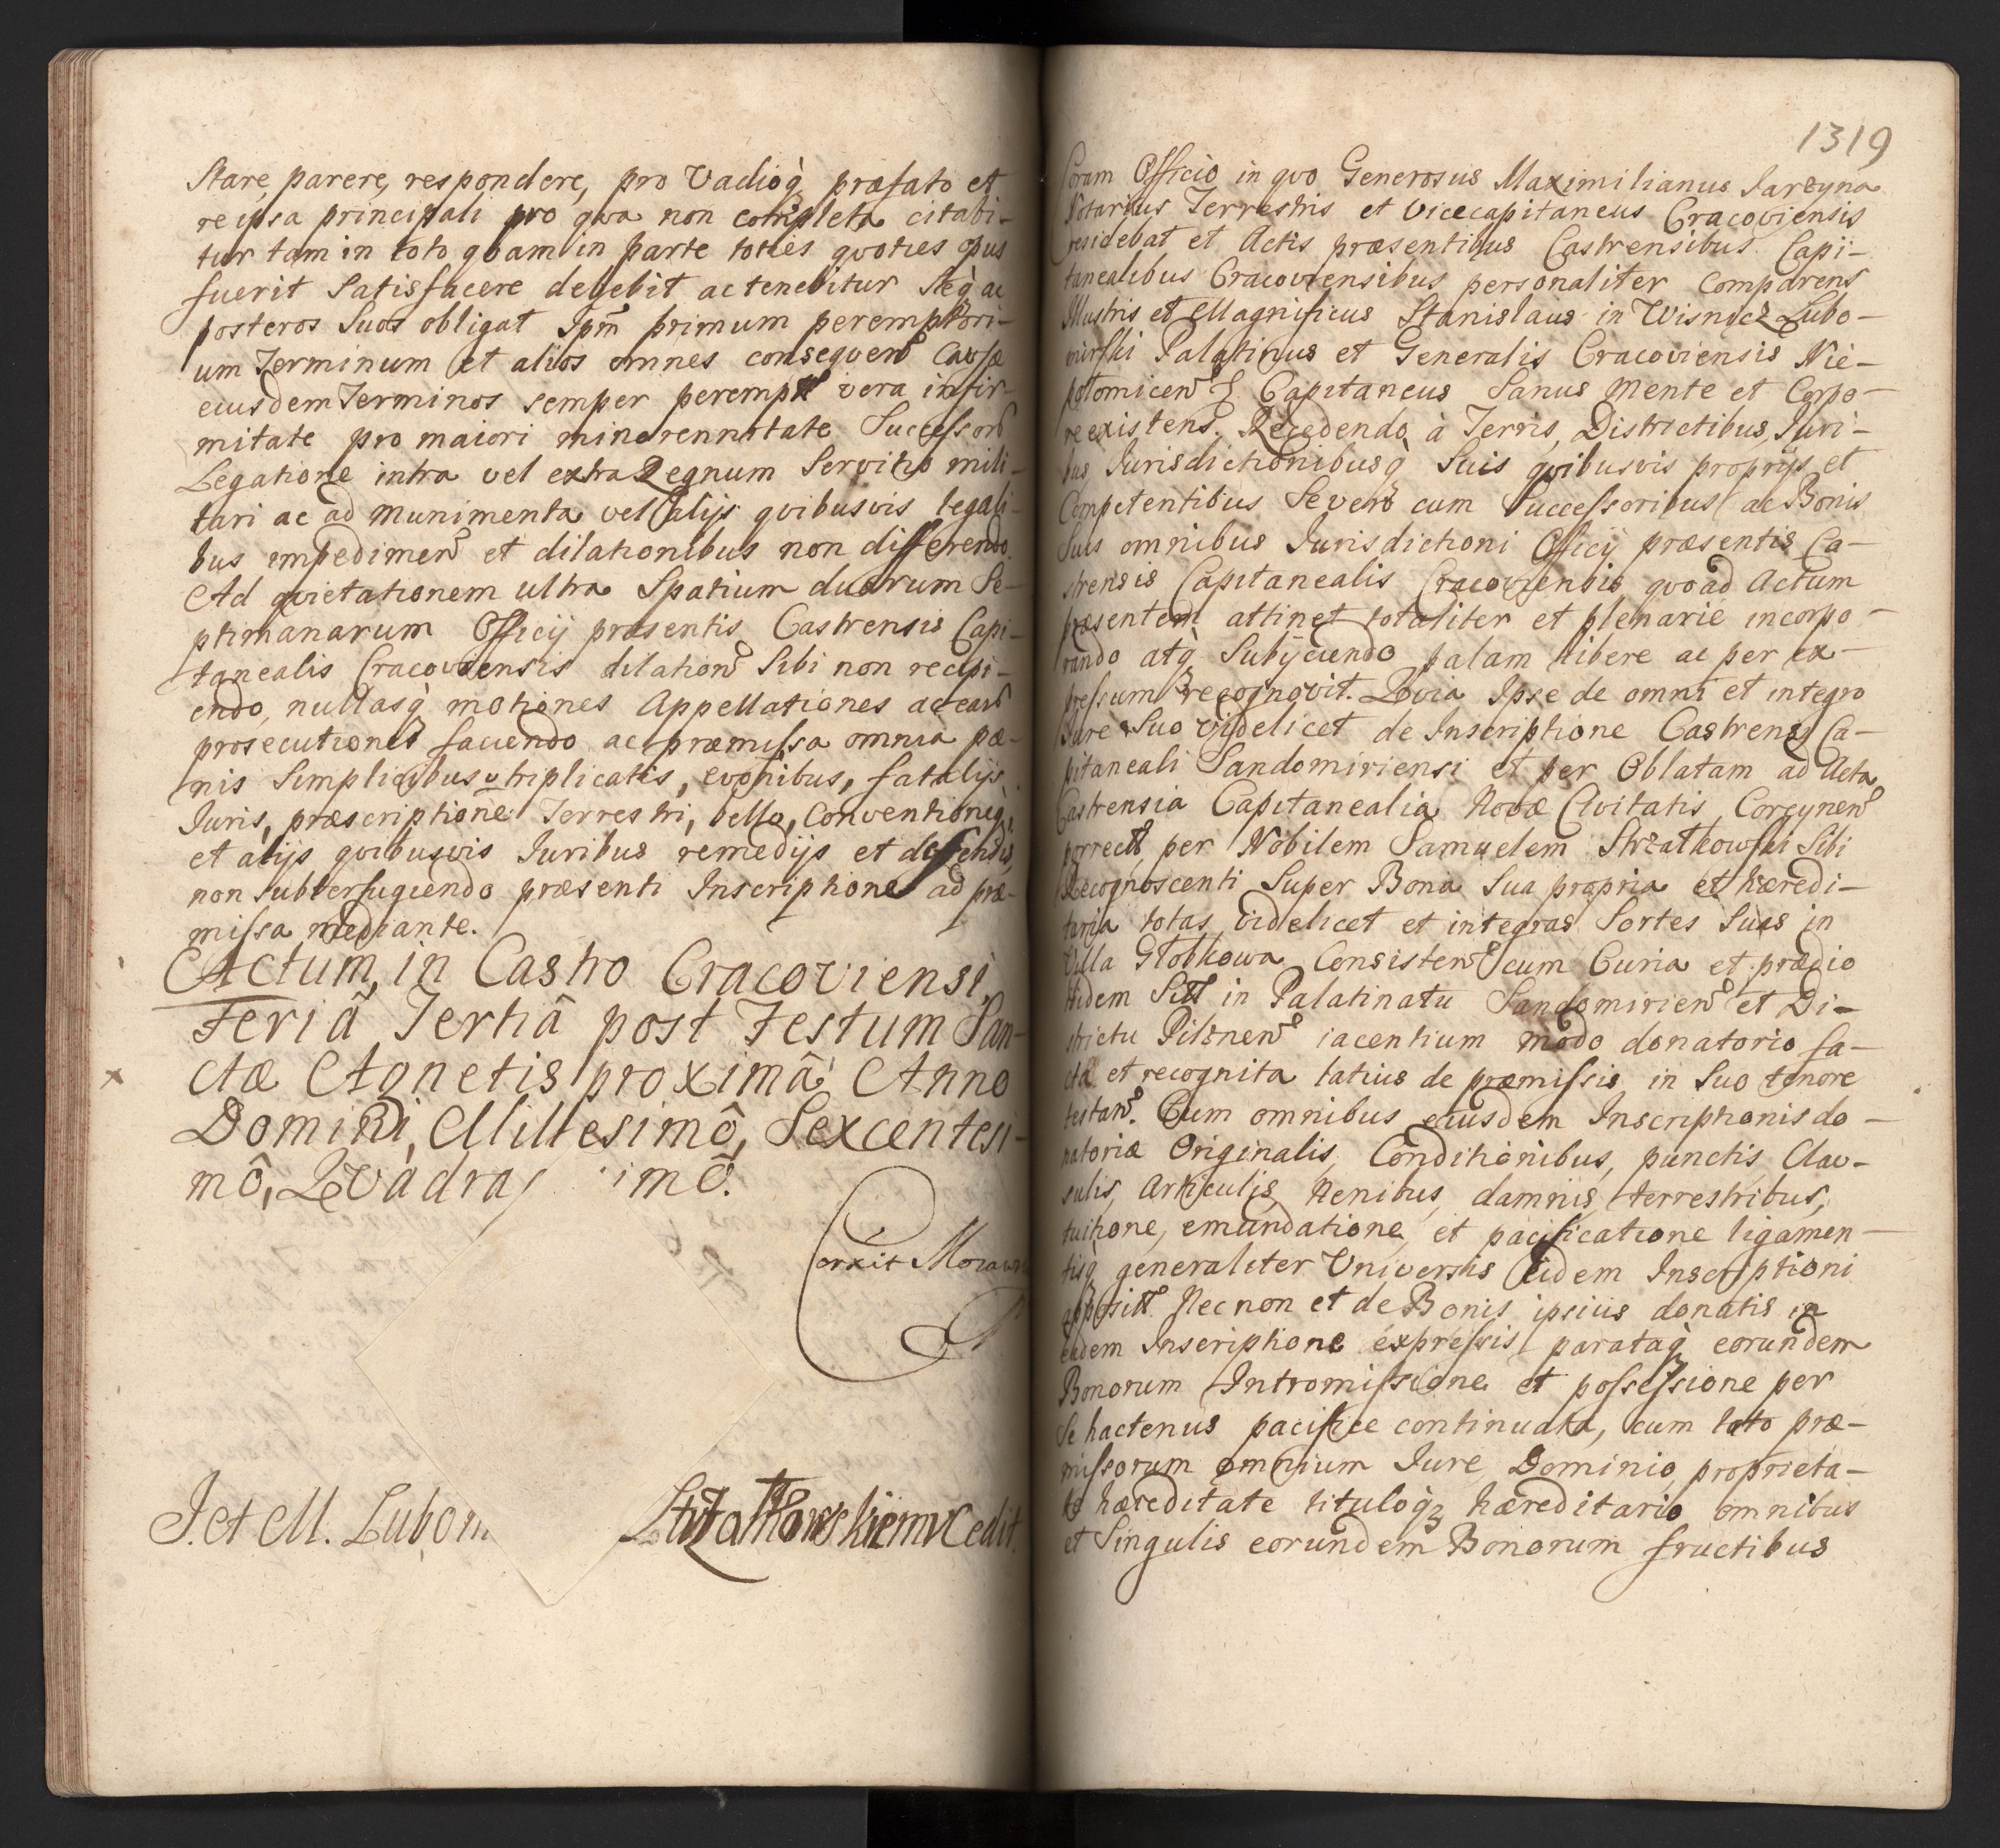 Stare, parere, respondere, pro Vadioq̀ȝ præfato et
re ipsa principali pro qva non completa citabi-
tur tam in toto qvam in parte toties qvoties opus
fuerit Satisfacere debebit ac tenebitur Seq̀ ac
posteros Suos obligat Ipm̃ primum peremptori-
um Terminum et alios omnes conseqven Causæ
eiusdem Terminos semper perempt vera infir-
mitate pro maiori minorennitate Successor
Legatione intra vel extra Regnum Servitio mili-
tari ac ad munimenta vel alijs qvibusvis legali-
bus impedimen et dilationibus non differendo.
Ad qvietationem ultra Spatium duarum Se-
ptimanarum Officij præsentis Castrensis Capi-
tanealis Cracoviensis dilation Sibi non recipi-
endo, nullasq̀ȝ motiones Appellationes ac ear
prosecutiones faciendo ac præmissa omnia pæ-
nis Simplicibus triplicatis, evonibus, fatalijs
Juris, præscriptione Terrestri, bello, Conventioneq̀,
et alijs qvibusvis Juribus remedijs et defensis,
non subterfugiendo præsenti Inscriptione ad præ-
missa mediante.
Actum, in Castro Cracoviensi,
Feriâ Tertiâ post Festum San-
ctæ Agnetis proximâ, Anno
Domini, Millesimô, Sexcentesi-
mô, Qvadra imô.
Corxit Moraw
J. et M. Lubom Strzałkowskiemv Cedit.
1319
Coram Officio in qvo Generosus Maximilianus Jarzyna
Notarius Terrestris et Vicecapitaneus Cracoviensis
residebat et Actis præsentibus Castrensibus Capi-
tanealibus Cracoviensibus personaliter Comparens
Illustris et Magnificus Stanislaus in Wisnicz Lubo-
mirski Palatinus et Generalis Cracoviensis Nie-
potomicen & Capitaneus Sanus Mente et Corpo-
re existens. Recedendo à Terris, Districtibus, Juri-
bus, Jurisdictionibusq̀ȝ Suis qvibusvis proprijs et
Competentibus Seven cum Successoribus ac Bonis
Suis omnibus Jurisdictioni Officij præsentis Ca-
strensis Capitanealis Cracoviensis, qvoad Actum
præsentem attinet totaliter et plenarie incorpo-
rando atq̀ȝ Subijciendo palam libere ac per ex-
pressum recognovit. Qvia Ipse de omni et integro
Jure Suo videlicet de Inscriptione Castrensi Ca-
pitaneali Sandomiriensi et per Oblatam ad Acta
Castrensia Capitanealia Novæ Civitatis Corcynen
porrect per Nobilem Samuelem Strzałkowski Sibi
Recognoscenti Super Bona Sua propria et hæredi-
taria totas videlicet et integras Sortes Suas in
Villa Głobikowa Consisten cum Curia et prædio
ibidem Sitt in Palatinatu Sandomirien et Di-
strictu Pilznen iacentium modo donatorio fa-
cta et recognita latius de præmissis in Suo tenore
testan. Cum omnibus eiusdem Inscriptionis do-
natoriæ Originalis, Conditionibus, punctis Clau-
sulis, Articulis, nenibus, damnis, terrestribus,
tuitione, emundatione, et pacificatione ligamen-
tisq̀ȝ generaliter Universis eidem Inscriptioni
apposit. Nec non et de Bonis ipsius donatis in
eadem Inscriptione expressis parataq̀ȝ eorundem
Bonorum Intromissione et possessione per
Se hactenus pacifice continuata, cum toto præ-
missorum omnium Jure Dominio proprieta-
te hæreditate tituloq̀ȝ hæreditario omnibus
et Singulis eorundem Bonorum fructibus